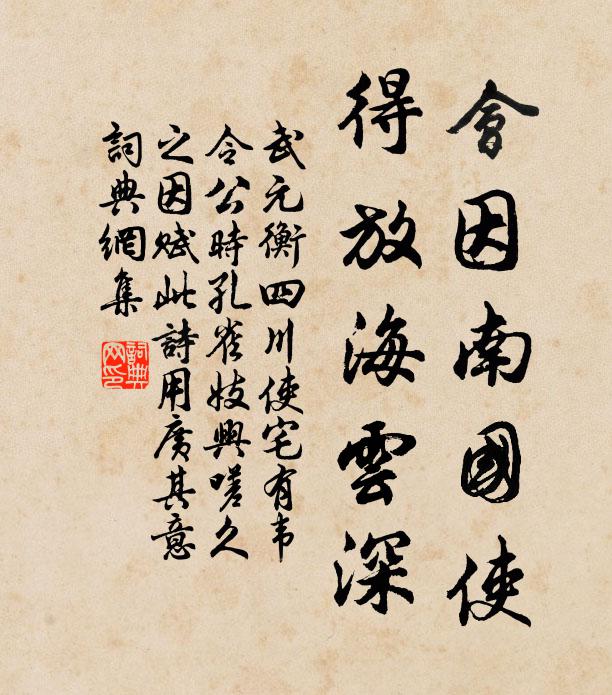 會因南國使
得放海雲深
武元衡四川使宅有韦
令公時孔雀妓興嗟久
之因赋此詩用廣其意
詞典網集
詞典
网印